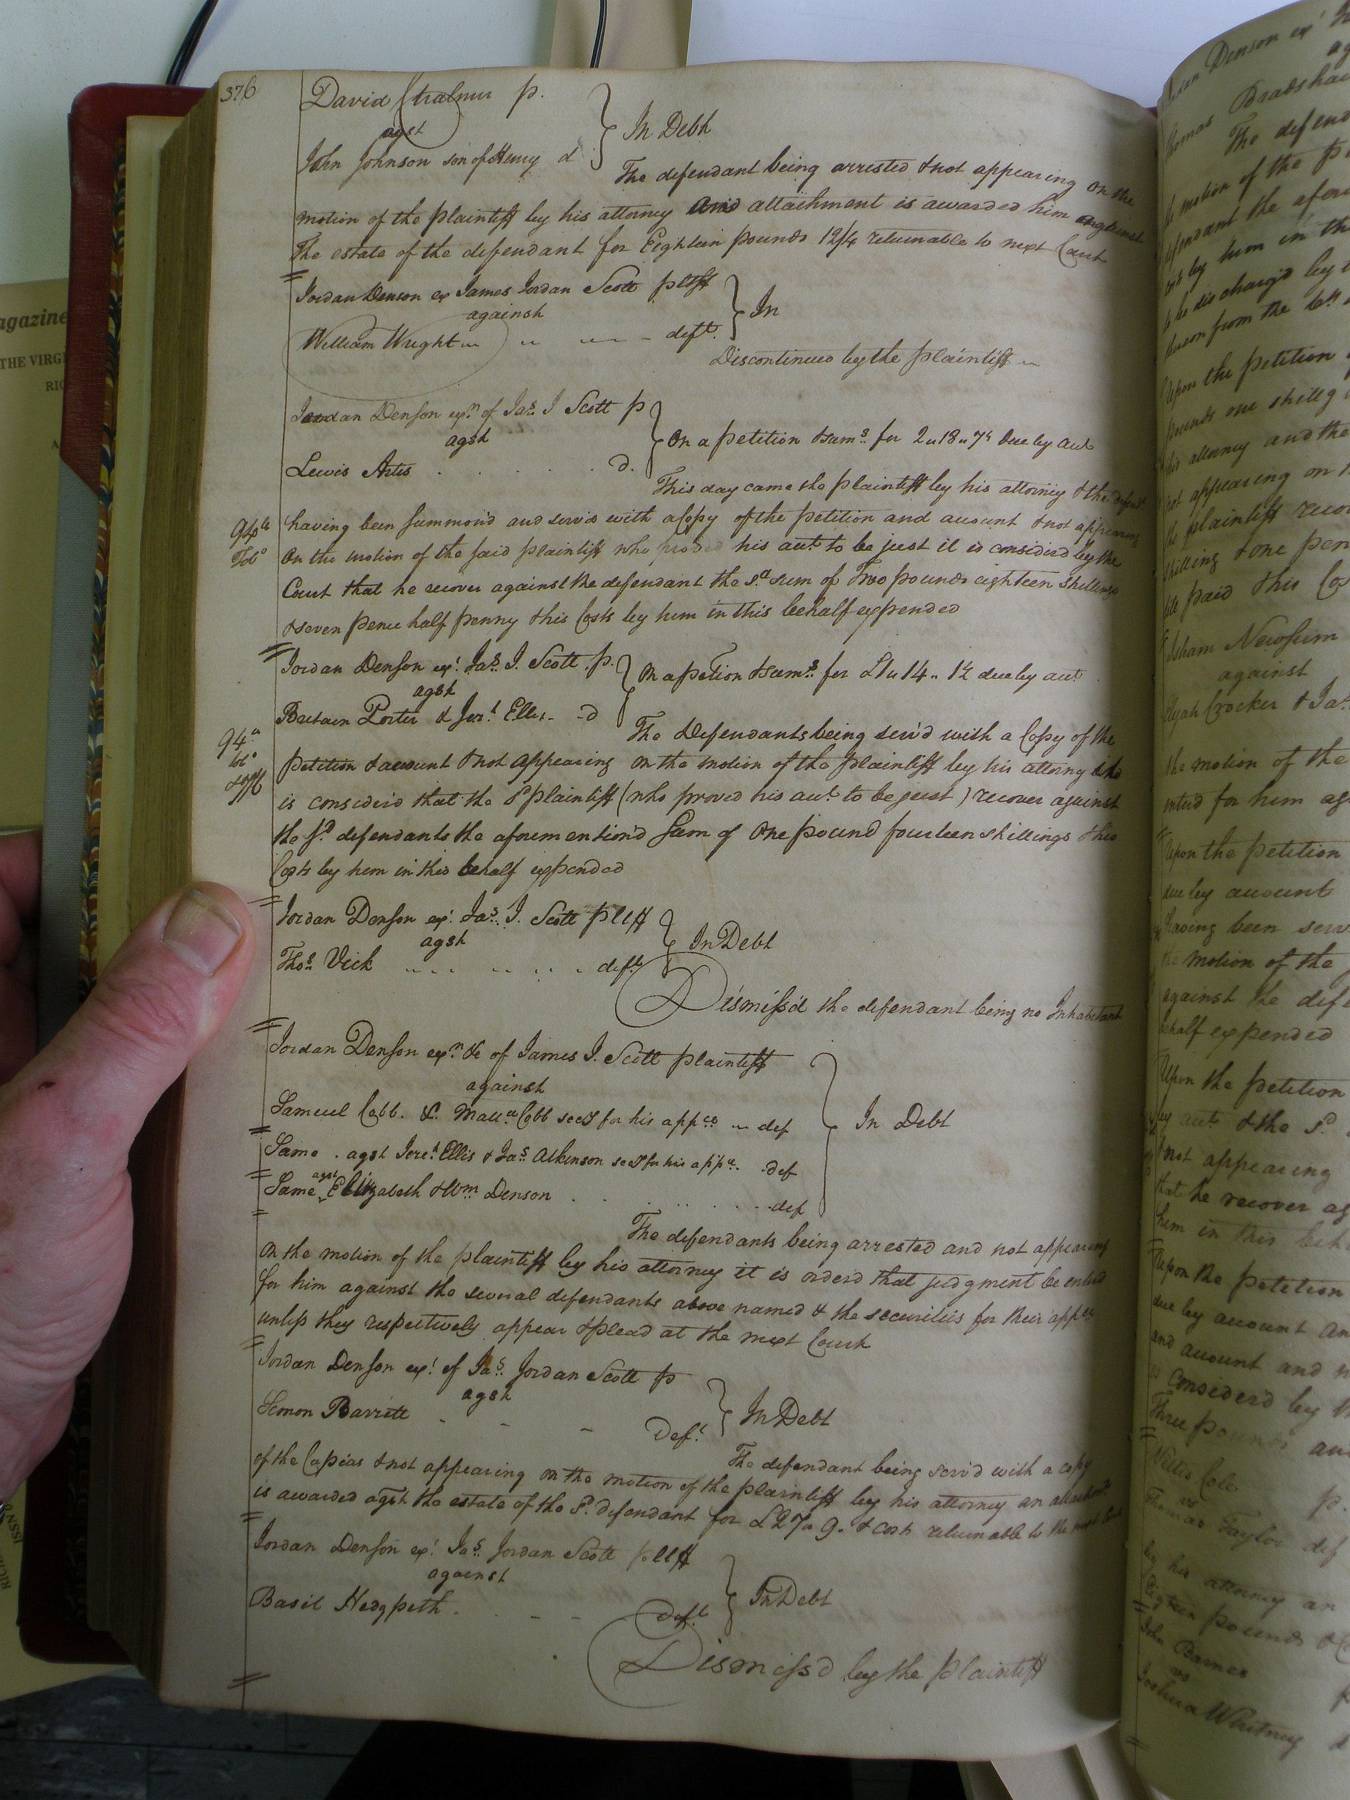 376
David Chalmer p.
agst
John Johnson son of Henry d
In Debt
The defendant being arrested & not appearing on the
motion of the plaintiff by his attorney attachment is awarded him against
The estate of the defendant for Eighteen pounds 12/4 returnable to next Court
Jordan Denson ex James Jordan Scott pltff
against
William Wright deft.
In
Discontinued by the plaintiff
Jordan Denson exr. of Jas. J Scott p
agst
Lewis Artis d.
On a petition & sums. for 2..18..7½ due by act
This day came the plaintiff by his attorney & the defend.
having been summond and servd with a Copy of the petition and account & not appearing
On the motion of the said plaintiff who proved his act. to be just it is considerd by the
Court that he recover against the defendant the sd. sum of Two pounds eighteen shillings
& seven pence half penny & his Costs by him in this behalf expended
Jordan Denson exr. Jas. J. Scott p.
agst
Britain Porter & Jert. Ellis d
On a petition & sums. for £1..14..1½ due by act
The Defendants being serv'd with a Copy of the
petition & account & not appearing on the motion of the plaintiff by his attorny
is consider'd that the sd plaintiff (who proved his act. to be just) recover against
the sd. defendants the aforemention'd Sum of One pound fourteen shillings & his
Costs by him in this behalf expended
Jordan Denson exr. Jas. J. Scott pltff
agst
Thos. Vick deft.
In Debt
Dismiss'd the defendant being no Inhabitant
Jordan Denson exr. &c of James J. Scott plaintiff
against
Samuel Cobb. & Matt. Cobb secy for his appce def
Same . agst Jere. Ellis & Jas. Atkinson secy for his appce. def
agst
Same Elizabeth & Wm Denson def
In Debt
The defendants being arrested and not appearing
on the motion of the plaintiff by his attorney it is orderd that judgment be enterd
for him against the several defendants above named & the securities for their appce
unless they respectively appear & plead at the next Court
Jordan Denson exr. of Jas. Jordan Scott p
agst
Simon Barrett Deft.
In Debt
The defendant being serv'd with a copy
of the Capias & not appearing on the motion of the plaintiff by his attorney an attachmt
is awarded agst the estate of the sd. defendant for £27..9. & costs returnable to the next Court
Jordan Denson exr. Jas. Jordan Scott pltff
against
Basil Hedgpeth Deft.
In Debt
Dismiss'd by the plaintiff
Bradshaw
The defend
motion of the
Upon the petition
against
the motion of the
Upon the petition
due by account
having been serv
the motion of the
against the defe
behalf expended
Upon the petition
not appearing
that he recover ag
him in this beh
Upon the petition
due by account an
and account and n
Three pounds an
Willis Cole p.
vs
Thomas Taylor def
by his attorney an
John Barnes p
vs
Joshua Whitney d
agazine
THE VIRG